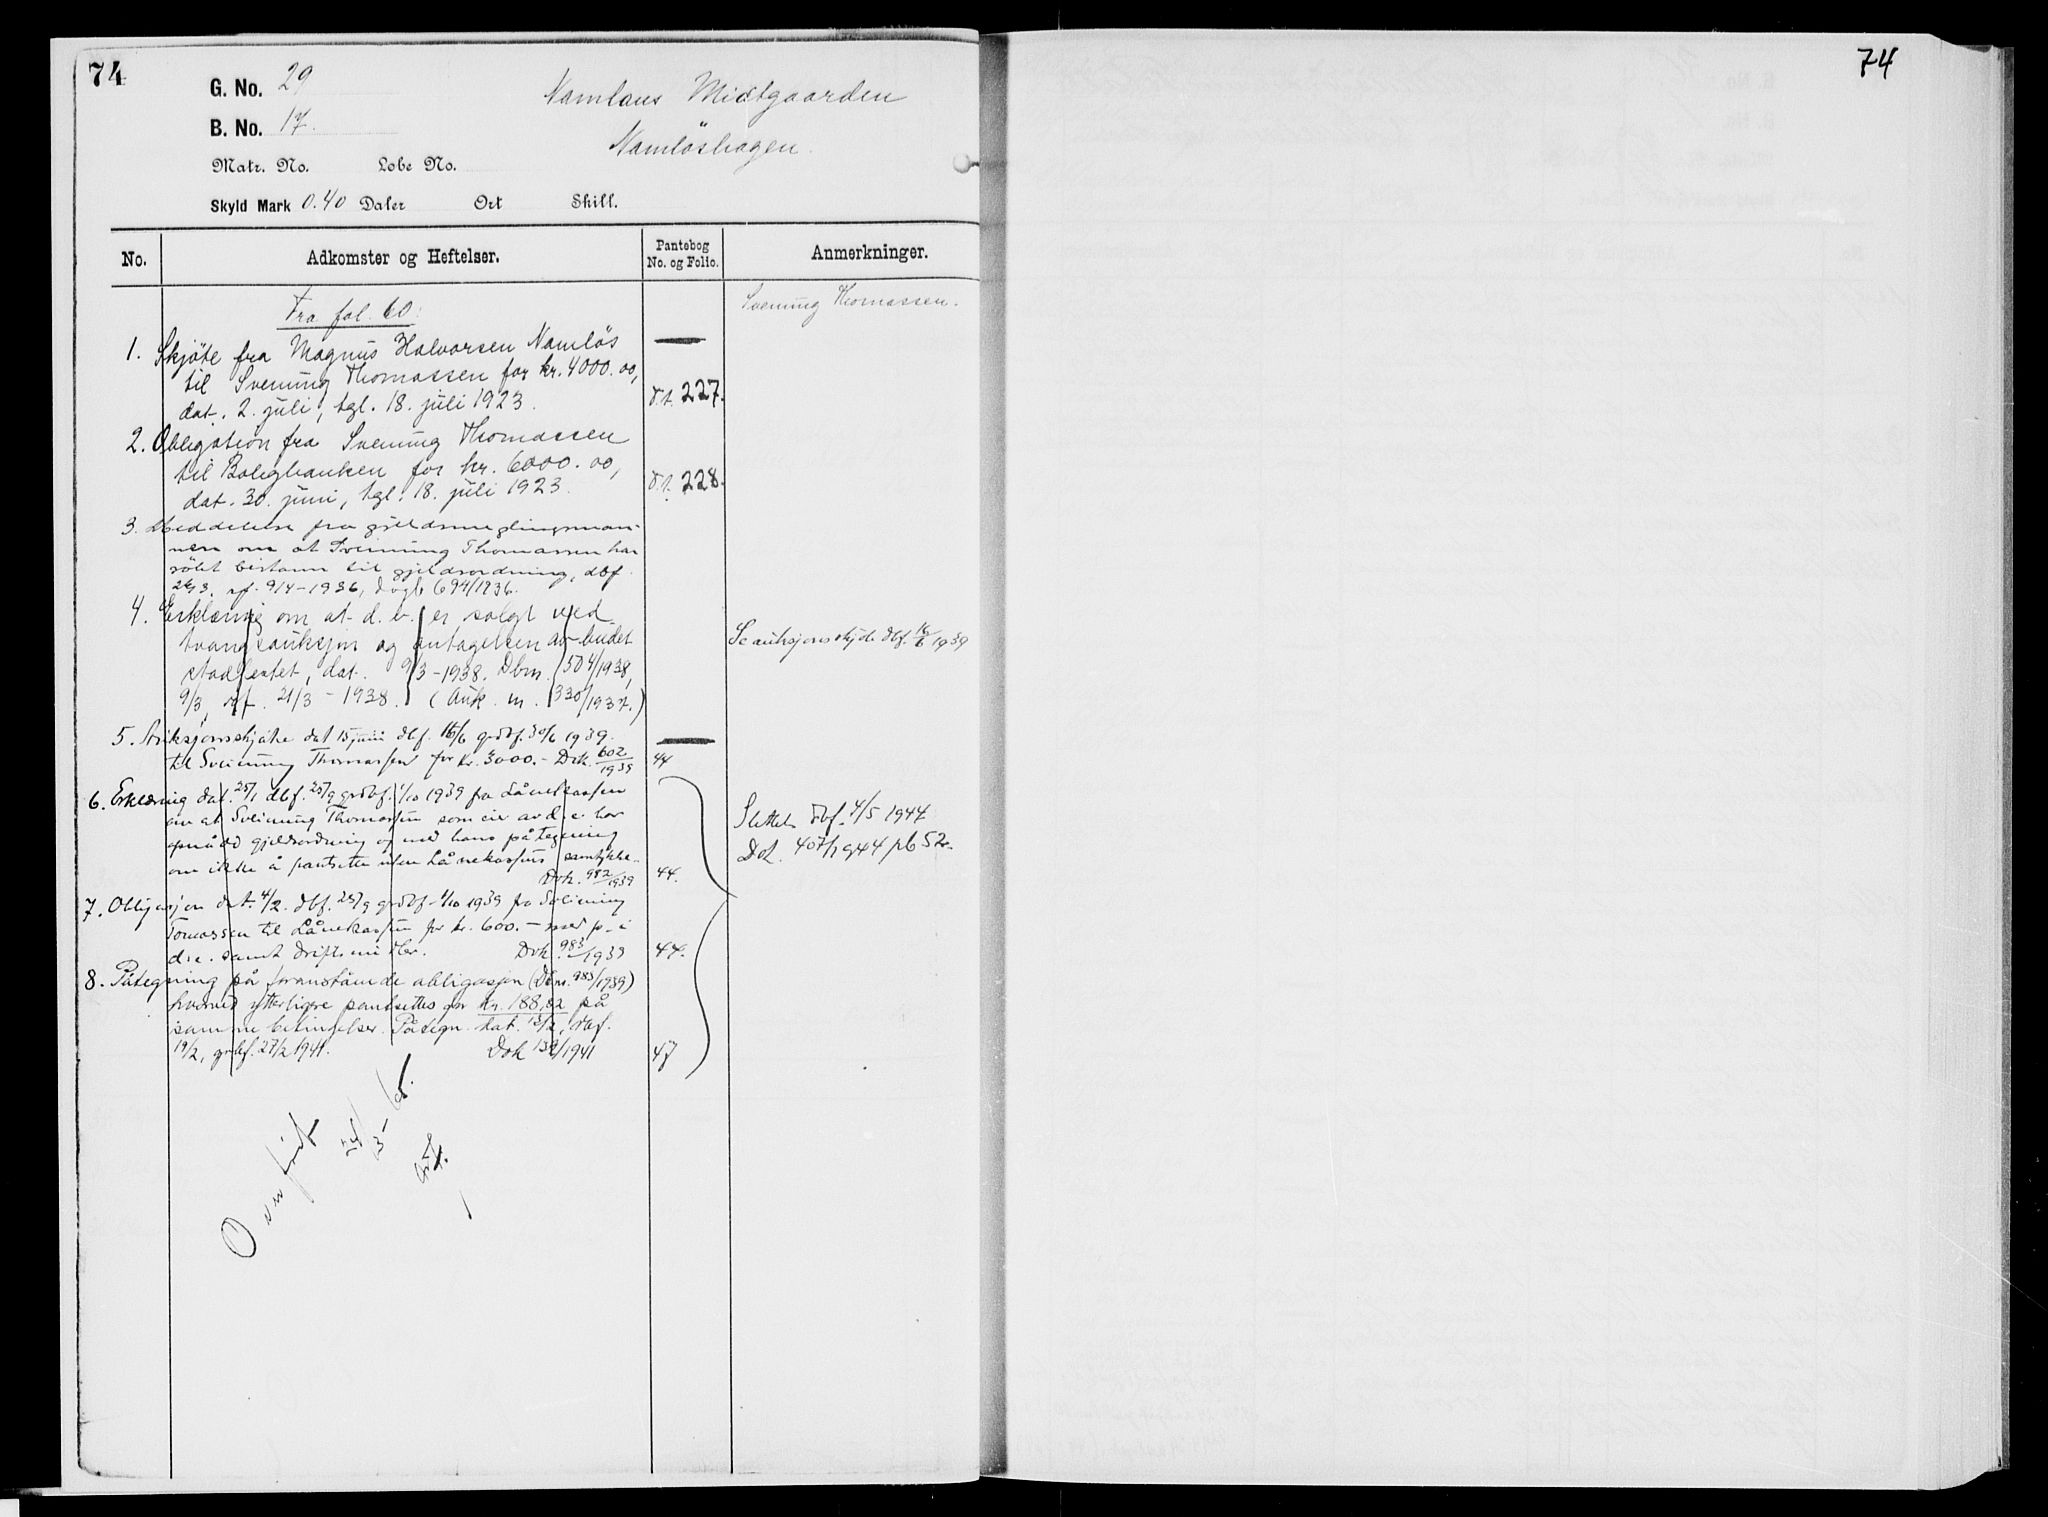 74
G. No. 29
B. No. 17.
Matr. No. Løbe No.
Skyld Mark 0.40 Daler Ort Skill.
Namlaus Midtgaarden
Namlöshagen.
No. Adkomster og Heftelser. Pantebog No. og Folio. Anmerkninger.
Fra fol. 60:
Svenung Thomassen.
1. Skjöte fra Magnus Halvorsen Namlös
til Svenung Thomassen for kr. 4000.00,
dat. 2. juli, tgl. 18. juli 1923. 227.
2. Obligation fra Svenung Thomassen
til Boligbanken for kr. 6000.00,
dat. 30. juni, tgl. 18. juli 1923. 228.
3. Meddelelse fra gjeldsmeglingsman-
nen om at Sveinung Thomassen har
sökt bistann til gjeldsordning, dbf.
26/3, rf. 9/4-1936, dagb 694/1936.
4. Erklæring om at d. e. er solgt ved
tvangsauksjon og antagelsen av budet
stadfestet, dat. 9/3-1938. Dbnr. 504/1938,
9/3, rf. 21/3-1938. (Auk. nr. 330/1937.)
Se auksjonsskjöte dbf. 16/6 1939
5. Auksjonsskjøte dat 15 juni dbf. 16/6 grdbf. 30/6 1939.
til Sveinung Thomassen for kr. 3000.- Dok. 602/1939 44
6. Erklæring dat. 25/1 dbf. 25/9 grdbf. 1/10 1939 fra Lånekassen
om at Sveinung Thomassen som eier av d.e. har
opnådd gjeldsordning og med hans påtegning
om ikke å pantsette uten Lånekassens samtykke.
Dok. 982/1939 44.
Slettet dbf. 4/5 1944
Dok. 407/1944 pb 52.
7. Obligasjon dat. 4/2. dbf. 25/9 grdbf. 1/10 1939 fra Sveinung
Tomassen til Lånekassen for kr. 600.- med p. i
d.e. samt driftsmidler. Dok. 983/1939 44.
8. Påtegning på foranstående obligasjon (Dbnr. 983/1939)
hvorved ytterligere pantsettes for kr. 188,82 på
samme betingelser. Påtegn. dat. 13/2, dbf.
19/2, grdbf. 27/2 1941. Dok 139/1941 47
Overført
74